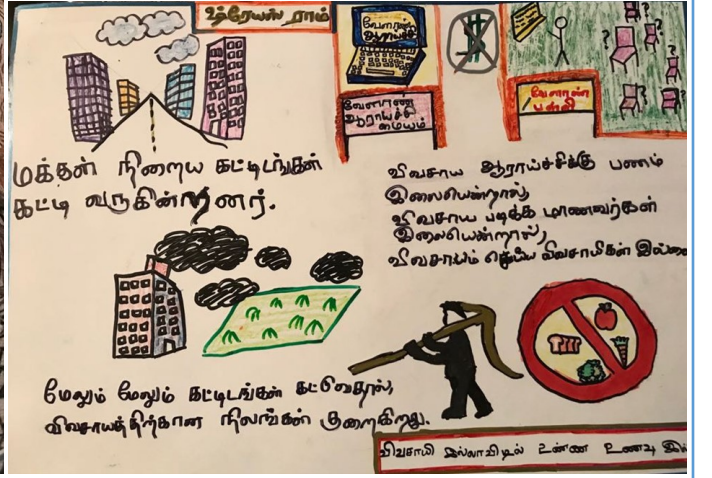 ஷ்ரேயஸ் ராம்
வேளாண்
ஆராய்ச்சி
வேளாண்
ஆராய்ச்சி
மையம்
வேளாண்
பள்ளி
மக்கள் நிறைய கட்டிடங்கள்
கட்டி வருகின்றனர்.
விவசாய ஆராய்ச்சிக்கு பணம்
இலையென்றால்,
விவசாய படிக்க மாணவர்கள்
இலையென்றால்,
விவசாயம் செய்ய விவசாயிகள்
மேலும் மேலும் கட்டிடங்கள் கட்டுவதால்,
விவசாயத்திற்கான நிலங்கள் குறைகிறது.
விவசாயி இல்லாவிடில் உண்ண உணவு